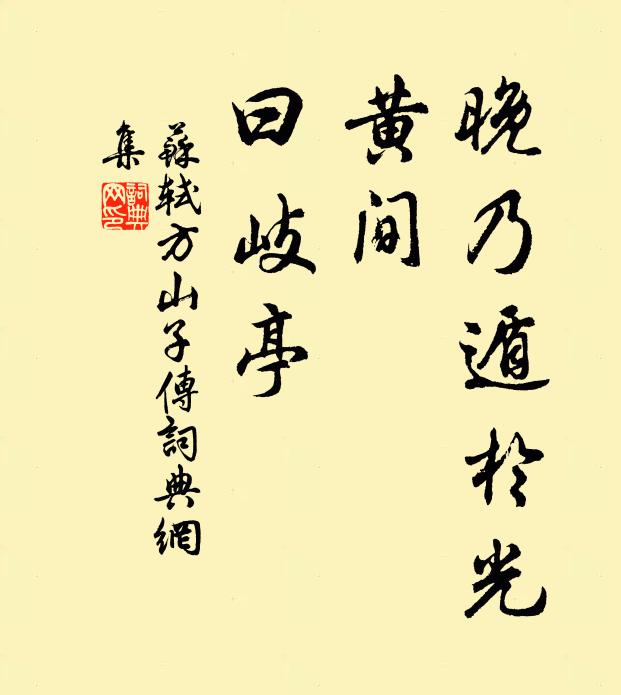 晚乃遁於光
黄间
曰岐亭
蘇軾方山子傳詞典網
集
詞典
网印